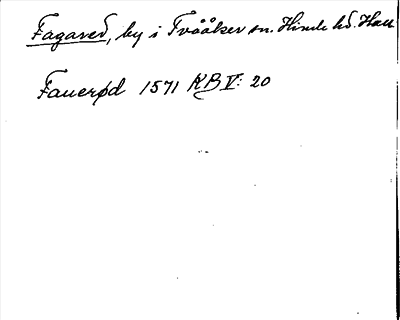 Fagared, by i Tvååker sn. Himle hd. Hall
Fauerød 1571 KB V: 20